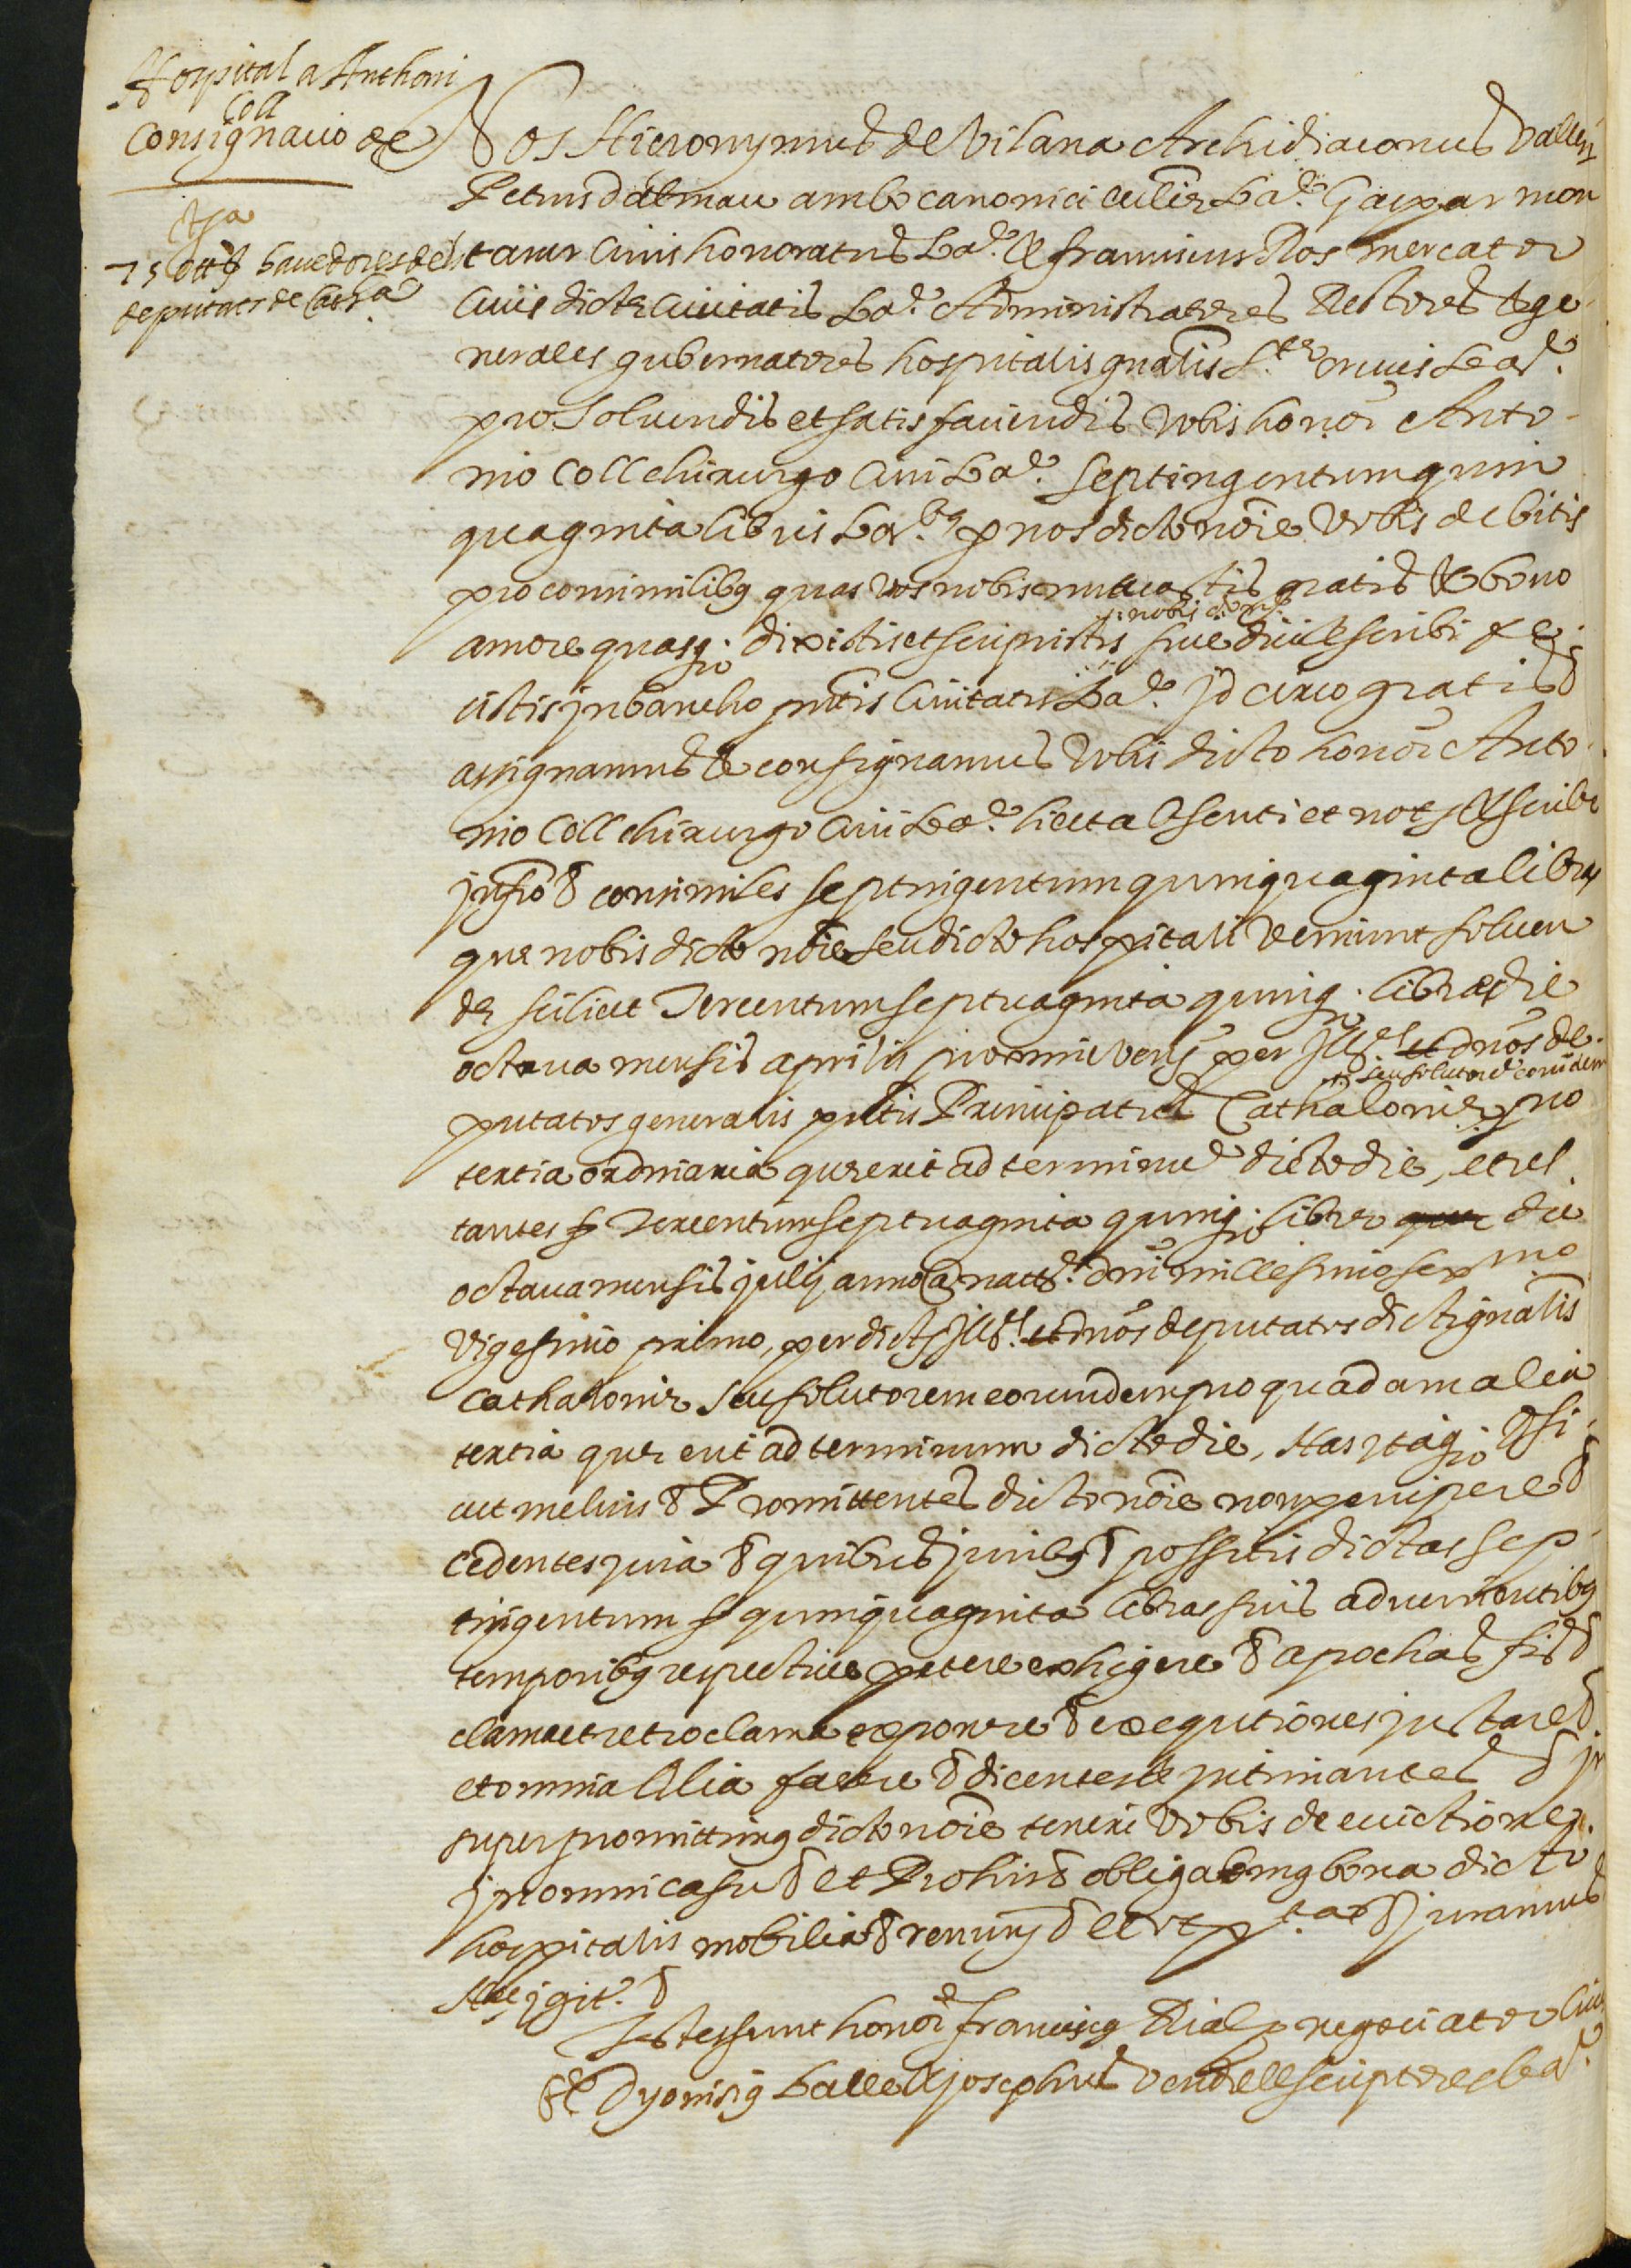 Hospital a Anthoni
Coll
Consignacio de
75 ## hauedores dels
deputats de Cat.ª
Nos Hieronymus de Vilana Archidiaconus Vallen
Petrus dalmau ambo canonici eccliæ Ba.ᵉ Gaspar mon
taner Civis honoratus Ba.ᵉ & franciscus Ros mercator
Civis dictæ Civitatis Ba.ᵉ Administratores Rectores & ge
nerales gubernatores hospitalis gnalis S.ᵗᵉ crucis Bar.ᵉ
pro solvendis et satisfaciendis vobis honor Anto-
nio Coll chirurgo Civi Ba.ᵉ septingentum quin
quaginta libris Bar. p nos dicto noie vobis debitis
pro consimilibus quas vos nobis mutuastis gratis & bono
amore quasq. dixistis et scripsistis sive dici & scribi fe-
cistis in bancho pntis Civitatis Ba.ᵉ Id circo gratis &
assignamus & consignamus vobis dicto honor Anto-
nio Coll chirurgo Civi Ba.ᵉ licet absenti et not &
& consimiles septingentum quinquaginta libras
quæ nobis dicto noie seu dicto hospitali veniunt solven
dæ scilicet Tercentum septuaginta quinq. libras die
octava mensis aprilis proxime ven per Ill. dnos de-
seu solutorem eorundem
putatos generalis pntis Principatus Cathaloniæ pro
tertia ordinaria quæ erit ad terminum dicto die, et res
tantes Tercentum septuaginta quinq. libras die
octava mensis julij anno a nat. dni millesimo sex.mo
vigesimo primo, per dictos Ill. dnos deputatos dicti gnalis
Cathaloniæ seu solutorem eorundem pro quadam alia
tertia quæ erit ad terminum dicto die, Has itaq
aut melius & Promittentes dicto noie non percipere &
Cedentes jura & quibus juribus & possitis dictas sep-
tingentum quinquaginta libras suis advenientibus
temporibus respective petere exhigere & apochas &
clama et retroclama exponere & exequtiones instare &
et omnia Alia facere & dicentes & intimantes & in
super promittimus dicto noie teneri vobis de evictione
in omni casu & et Prohis & obligamus bona dicto
hospitalis mobilia & renun & juramus
Hæc igit. &
Testes sunt honor franciscus Rialp negociator Civis
& Dyonisius Balle & josephus Vendrell scriptores Bar.